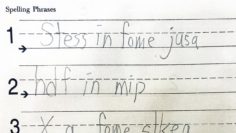 Spelling Phrases
1 Stess in fome jusa
2 hdf in mip
3 X a fome